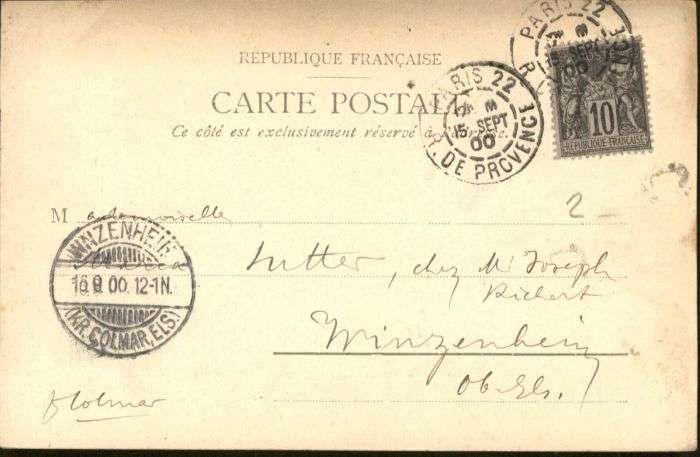 RÉPUBLIQUE FRANÇAISE
CARTE POSTALE
Ce côté est exclusivement réservé à l'adresse.
PARIS 22
15 SEPT
00
R. DE PROVENCE
PARIS 22
15 SEPT
00
R. PROVENCE
10
REPUBLIQUE FRANÇAISE
2
Mademoiselle
WINZENHEIM
16.9.00. 12-1N.
(KR. COLMAR, ELS.)
Sutter, chez Mr Joseph
Richert
Winzenheim
Ob. Els.
Colmar